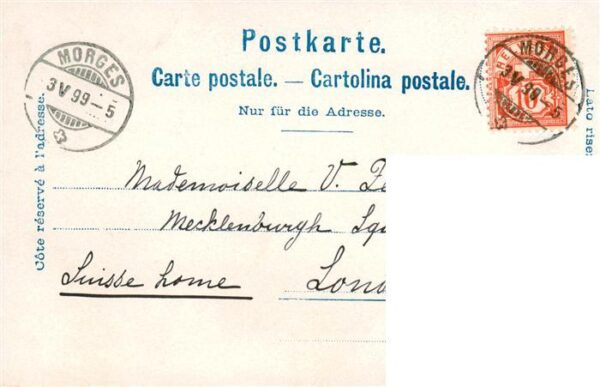 Postkarte.
Carte postale. — Cartolina postale.
Nur für die Adresse.
MORGES
3 V 99 – 5
HEL
10
MORGES
3 V 99 – 5
Côte réservé à l'adresse.
Lato rise
Mademoiselle V.
Mecklenburgh Squ
Suisse home
Lond